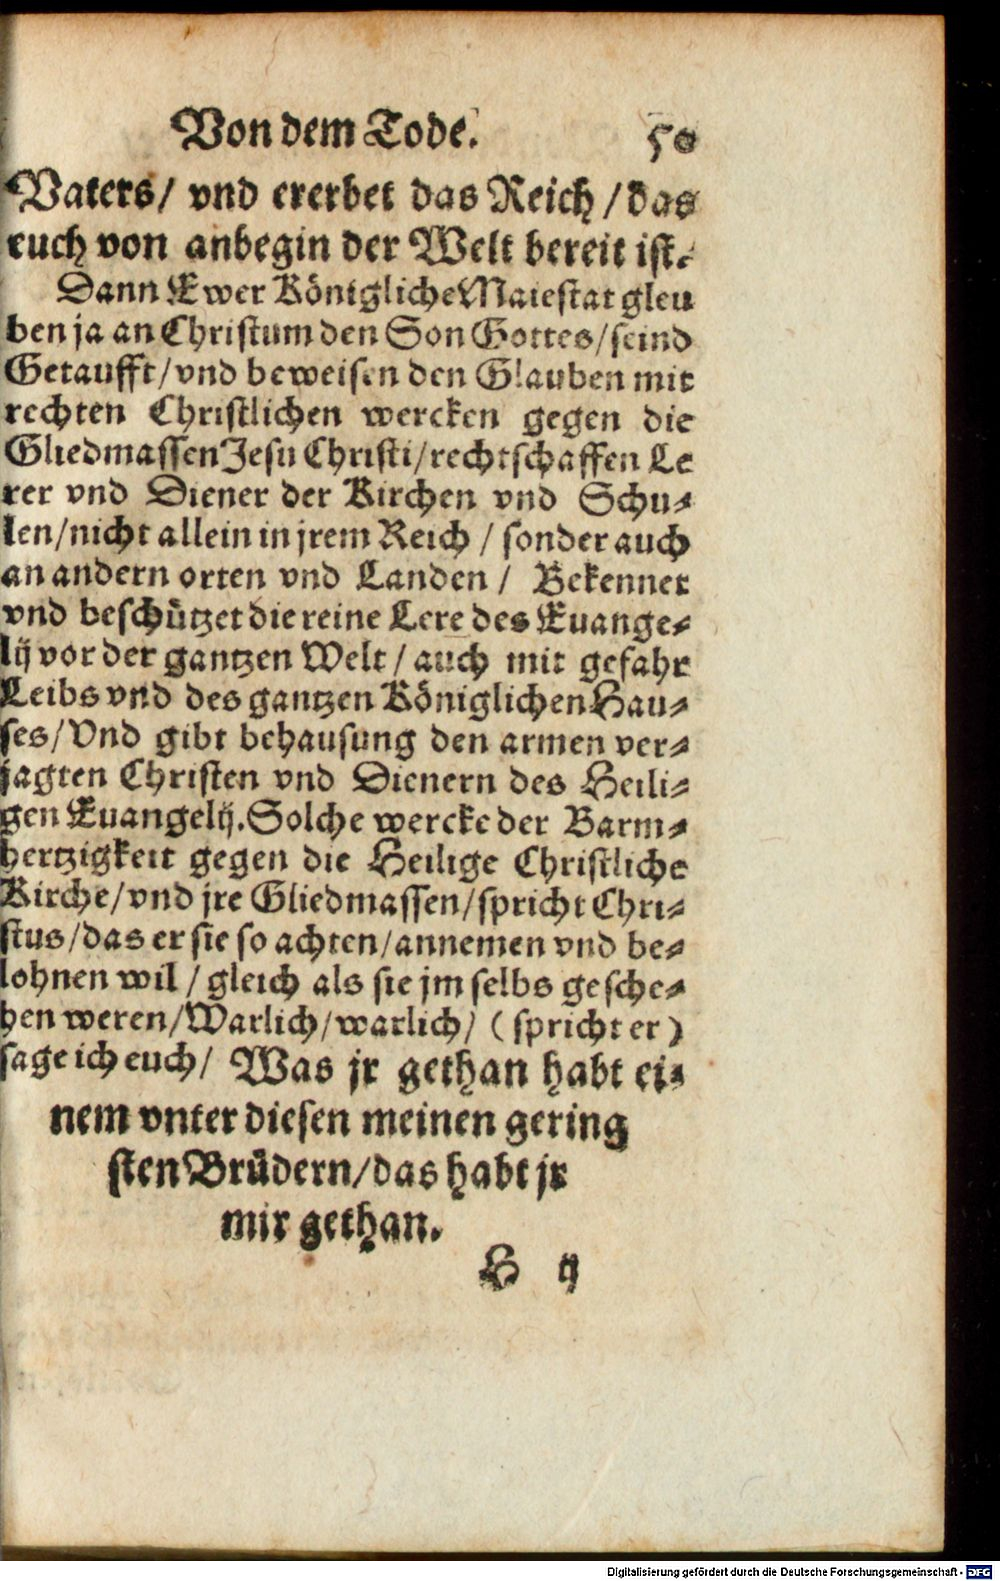 Von dem Tode. 50
Vaters/ vnd ererbet das Reich / das
euch von anbegin der Welt bereit ist.
Dann Ewer Königliche Maiestat gleu
ben ja an Christum den Son Gottes/ seind
Getaufft/ vnd beweisen den Glauben mit
rechten Christlichen wercken gegen die
Gliedmassen Jesu Christi/ rechtschaffen Le
rer vnd Diener der Kirchen vnd Schu⸗
len/ nicht allein in jrem Reich / sonder auch
an andern orten vnd Landen / Bekennet
vnd beschützet die reine Lere des Euange⸗
lij vor der gantzen Welt / auch mit gefahr
Leibs vnd des gantzen Königlichen Hau⸗
ses/ Vnd gibt behausung den armen ver⸗
jagten Christen vnd Dienern des Heili⸗
gen Euangelij. Solche wercke der Barm⸗
hertzigkeit gegen die Heilige Christliche
Kirche/ vnd jre Gliedmassen/ spricht Chri⸗
stus/ das er sie so achten/ annemen vnd be⸗
lohnen wil / gleich als sie jm selbs gesche⸗
hen weren/ Warlich/ warlich/ ( spricht er )
sage ich euch/ Was jr gethan habt ei⸗
nem vnter diesen meinen gering
sten Brüdern/ das habt jr
mir gethan.
H ij
Digitalisierung gefördert durch die Deutsche Forschungsgemeinschaft - DFG